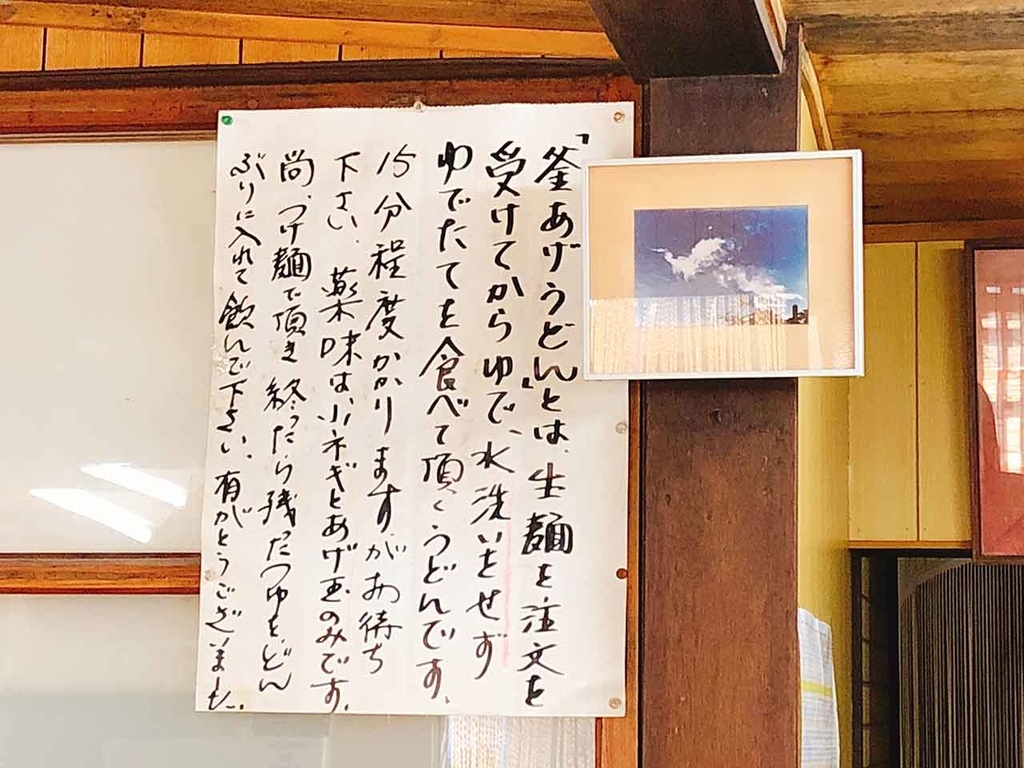 「釜あげうどん」とは、生麺を注文を
受けてからゆで、水洗いをせず
ゆでたてを食べて頂くうどんです。
15分程度かかりますがお待ち
下さい。薬味は小ネギとあげ玉のみです。
尚、つけ麺で頂き終ったら残ったつゆを、どん
ぶりに入れて飲んで下さい。有がとうございました。